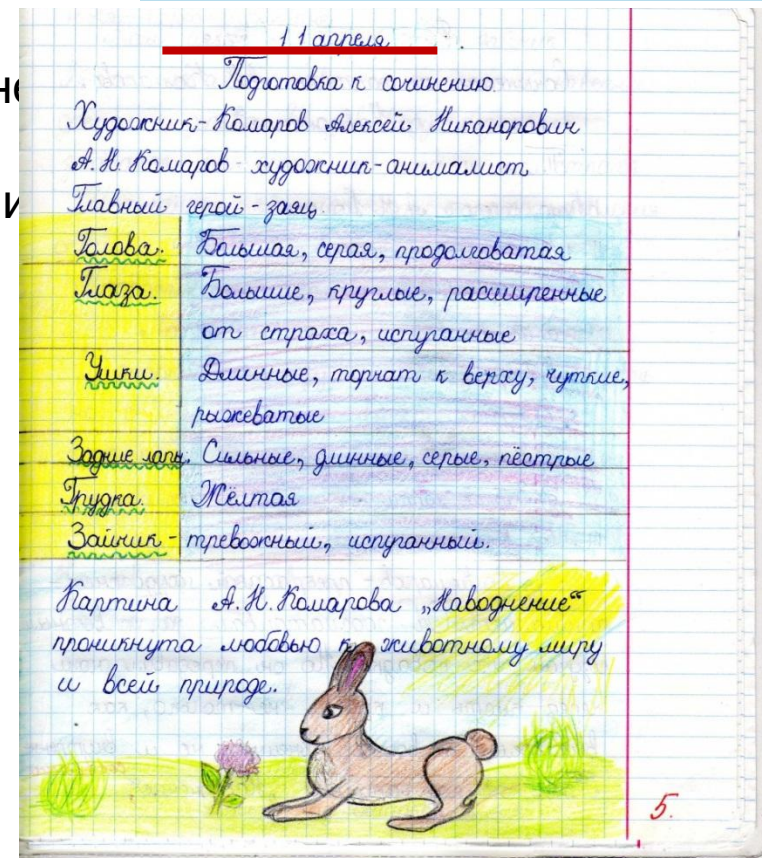 11 апреля
Подготовка к сочинению.
не
Художник - Комаров Алексей Никанорович
А. Н. Комаров - художник-анималист
и
Главный герой - заяц.
Голова. Большая, серая, продолговатая
Глаза. Большие, круглые, расширенные
от страха, испуганные
Ушки. Длинные, торчат к верху, чуткие,
рыжеватые
Задние лапы. Сильные, длинные, серые, пёстрые
Грудка. Жёлтая
Зайчик - тревожный, испуганный.
Картина А. Н. Комарова „Наводнение“
проникнута любовью к животному миру
и всей природе.
5.